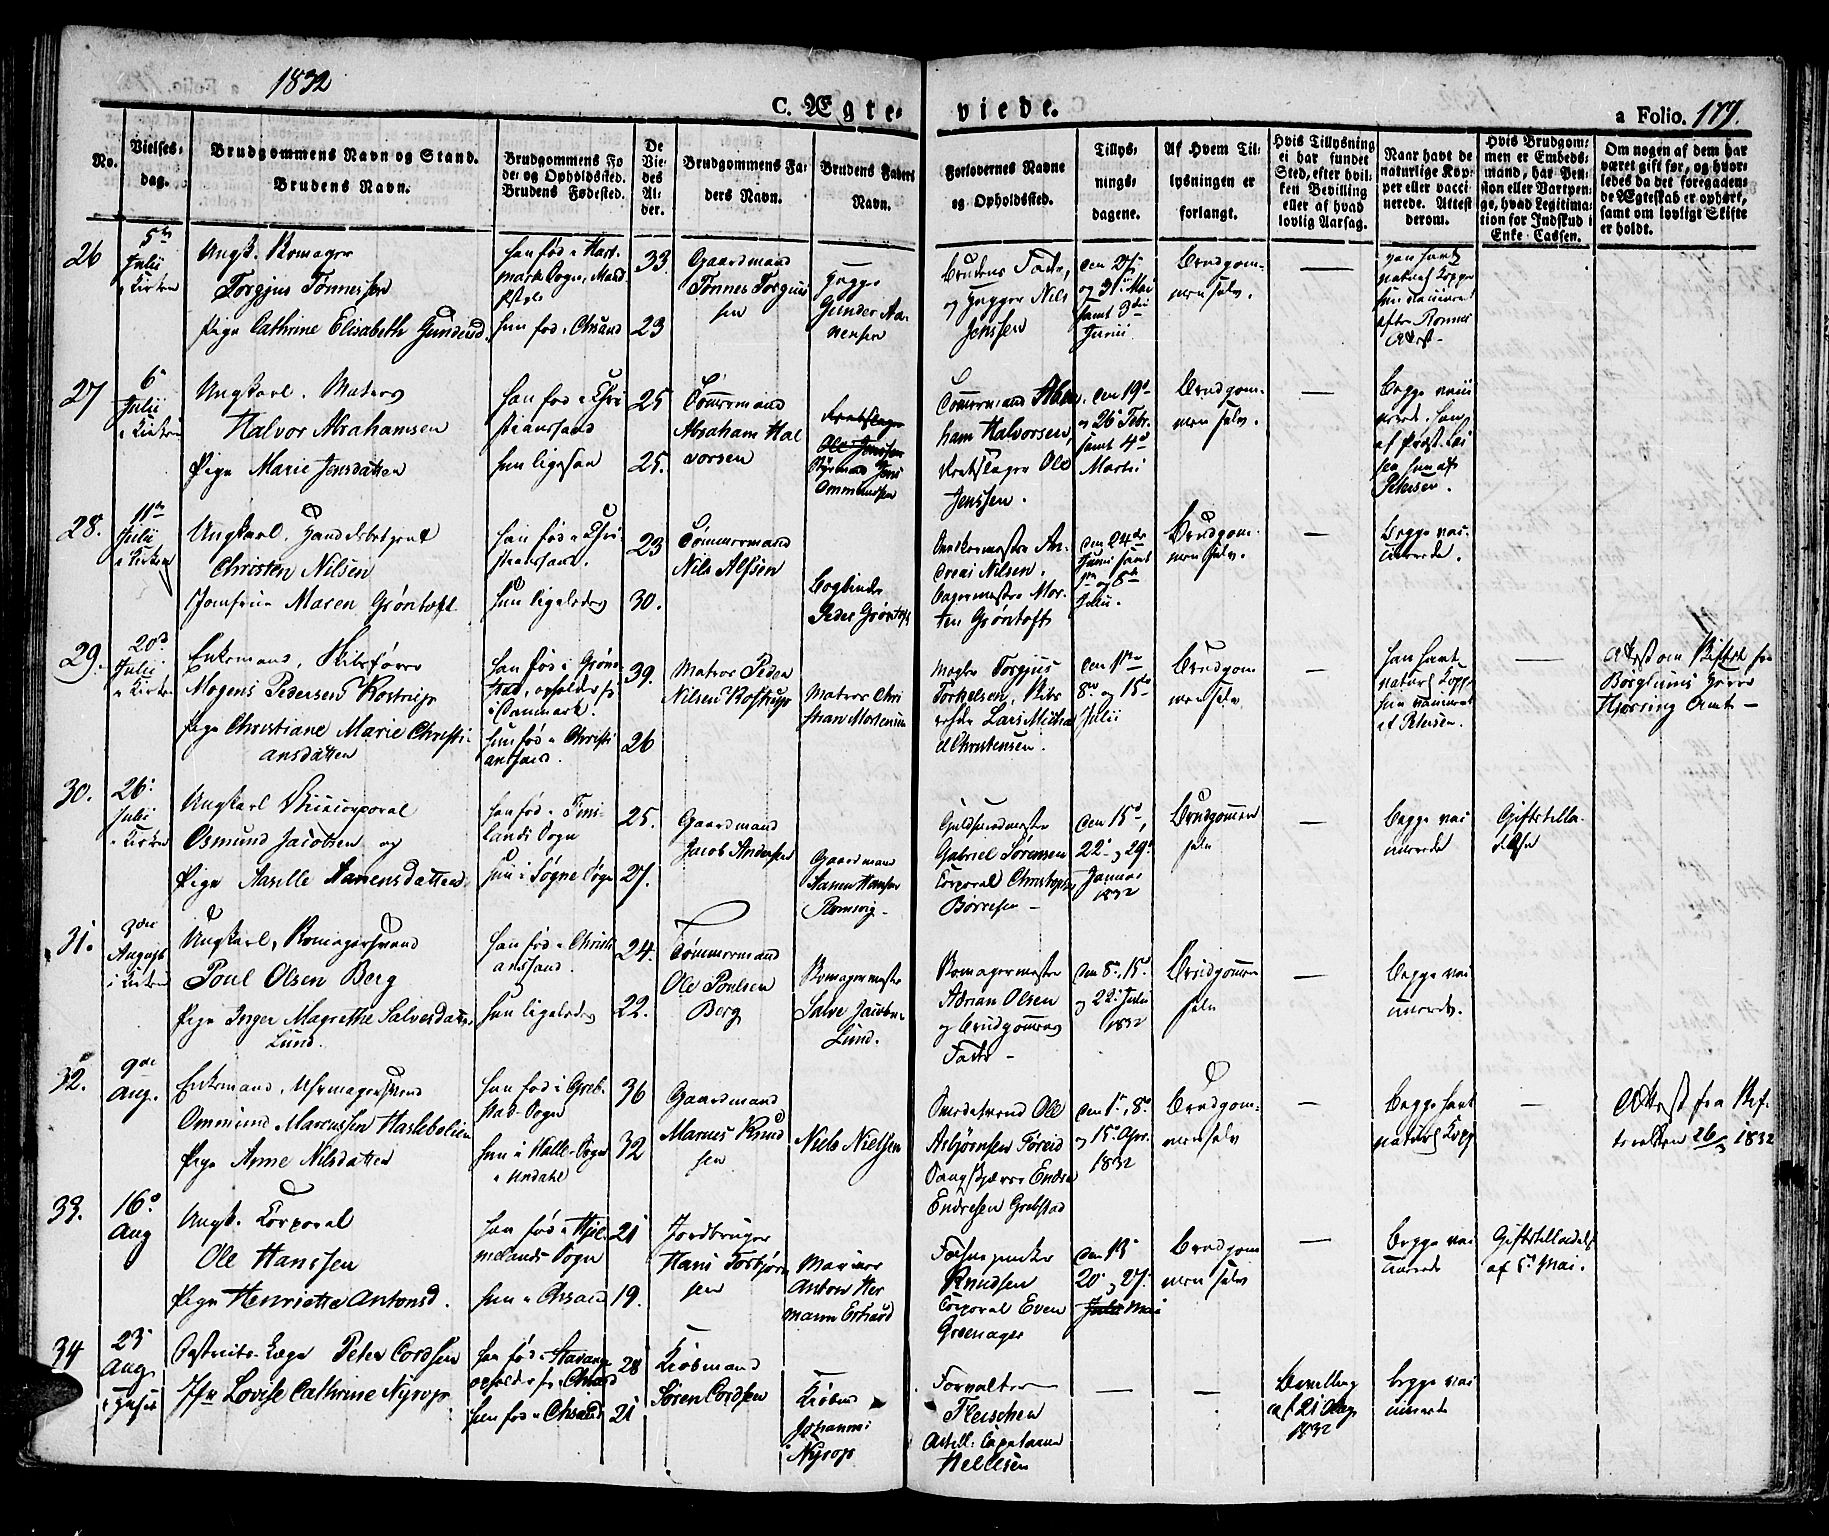 1832
C. Ægte- viede.
a Folio. 177.
No.
Vielses-
dag.
Brudgommens Navn og Stand.
Brudens Navn.
Brudgommens Fø
de- og Opholdssted.
Brudens Fødested.
De
Vie-
des
Al-
der.
Brudgommens Fa-
ders Navn.
Brudens Faders
Navn.
Forlovernes Navne
og Opholdssted.
Tillys-
nings-
dagene.
Af Hvem Til-
lysningen er
forlangt.
Hvis Tillysning
ei har fundet
Sted, efter hvil-
ken Bevilling
eller af hvad
lovlig Aarsag.
Naar havt de
naturlige Kop-
per eller vacci-
nerede. Attest
derom.
Hvis Brudgom-
men er Embeds-
mand, har Pen-
sion eller Vartpen-
ge, hvad Legitima-
tion for Indskud i
Enke-Cassen.
Om nogen af dem har
været gift før, og hvor-
ledes da det foregaaen-
de Ægteskab er ophørt,
samt om lovligt Skifte
er holdt.
26
5te
Julii
i Kirken
Ungk.
Torgjus Tønnessen
Pige Cathrine Elisabeth Gundersd.
han fød i Hart-
mark Sogn, Mand
hun fød i Chrsand
33
23
Gaardmand
Tønnes Torgius
sen
Gunder Aa-
nensen
Brudens Fader,
og Nils
Jenssen
den 27,
og 31te Mai
samt 3die
Junii
Brudgom-
men selv.
—
han havt
naturl Kopper
hun vaccineret
efter
Attest
27
6
Julii
i Kirken
Ungkarl. Matros
Halvor Abrahamsen
Pige Marie Jensdatter
han fød i Chri
stianssand
hun ligesaa
25
25.
Tømmermand
Abraham Hal
vorsen
Ole Jenssen
Styrmand Jens
Ommundsen
Tømmermand Abra
ham Halvorsen,
Ole
Jenssen.
den 19d
og 26 Febr.
samt 4d
Martii
Brudgom-
men selv.
—
Begge vacci
nerede. han
af
sen hun af
Petersen.
28.
11te
Julii
i Kirken
Ungkarl. Handelsbetjent
Christen Nilsen
Jomfrue Maren Grøntoft
han fød i Chri
stianssand.
hun ligeledes
23
30.
Tømmermand
Nils Alfsen
Bogbinder
Peder Grøntoft
An-
dreas Nilsen.
Bagermester Mor-
ten Grøntoft
den 24de
Junii samt
1te og 8de
Julii.
Brudgom-
men selv.
—
Begge vac-
cinerede.
29.
20d
Julii
i Kirken
Enkemand, Skibsfører
Mogens Pedersen Kostrup
Pige Christiane Marie Christi-
ansdatter
han fød i Grøns
stad, opholder sig
i Danmark.
hun fød i Christi
anssand.
39.
26
Matros Peder
Nilsen Kostrup
Matros Chri
stian Mortensen
Mægler Torgjus
Torkelsen, Skibs
Lars Micha
el Christensen.
den 1te
8de og 15de
Julii
Brudgom
men selv
—
han havt
naturl Kopp
hun vaccineret
af Petersen.
—
Attest om Skifte fra
Børglums Herred
Hjørring Amt —
30.
26.
Julii
i Kirken
Ungkarl Corporal
Osmund Jacobsen og
Pige Aaselle Aanensdatter
han fød i Fins-
lands Sogn
hun i Søgne Sogn
25.
27.
Gaardmand
Jacob Andersen
Gaardmand
Aanen Hansen
Romsvig —
Guldsmedmester
Gabriel Sørensen
Corporal Christopher
Børresen —
den 15d,
22. og 29.
Januar
1832
Brudgommen
selv
—
Begge vac
cinerede
Giftetilla-
delse
31.
3die
August
i Kirken
Ungkarl,
Poul Olsen Berg
Pige Inger Magrethe Salvesdatter
Lund.
han fød i Christi
anssand.
hun ligeledes
24.
22.
Tømmermand
Ole Poulsen
Berg
Salve Jacobsen
Lund.
Adrian Olsen
og Brudgommens
Fader —
den 8. 15d
og 22. Julii
1832
Brudgommen
selv
—
Begge vac
cinerede.
32.
9de
Aug.
Enkemand, Uhrmagersvend
Ommund Marcussen Haslebolien
Pige Anne Nilsdatter
han fød i Greb-
stad Sogn
hun i Halle-Sogn
i Undahl
36
32
Gaardmand
Marcus Knud
sen
Niels Nielsen
Ole
Asbjørnsen Føreid
Endre
Endresen Grebstad
den 1. 8de
og 15d Apr.
1832
Brudgom-
men selv
—
Begge havt
naturl Kopp
—
Attest fra Skif-
teretten 26/3 1832
33.
16d
Aug
Ungk. Corporal
Ole Hanssen
Pige Henriette Antonsd.
han fød i Hjel-
melands Sogn
hun i Chrsand
21
19.
Jordbruger
Hans Torbjørn
sen
Mariner
Anton Her
mann
Knudsen
Corporal Even
Grønager
den 13
20. og 27.
Julii Mai
Brudgom
men selv
—
Begge vac
cinerede
Giftetilladelse
af 5 Mai.
34
23
Aug.
i Huset
Peter Cordsen
Jfr Lovise Cathrine Nyrop
han fød i Stavang.
opholder sig Chrsand
hun fød i Chrsand
28
21
Kiøbmand
Søren Cordsen
Kiøbmd
Johannes
Nyrop
Forvalter
Fleischer
Artill. Capitaine
Hellesen
—
—
Bevilling
af 21 Aug
1832
begge vac
cinerede